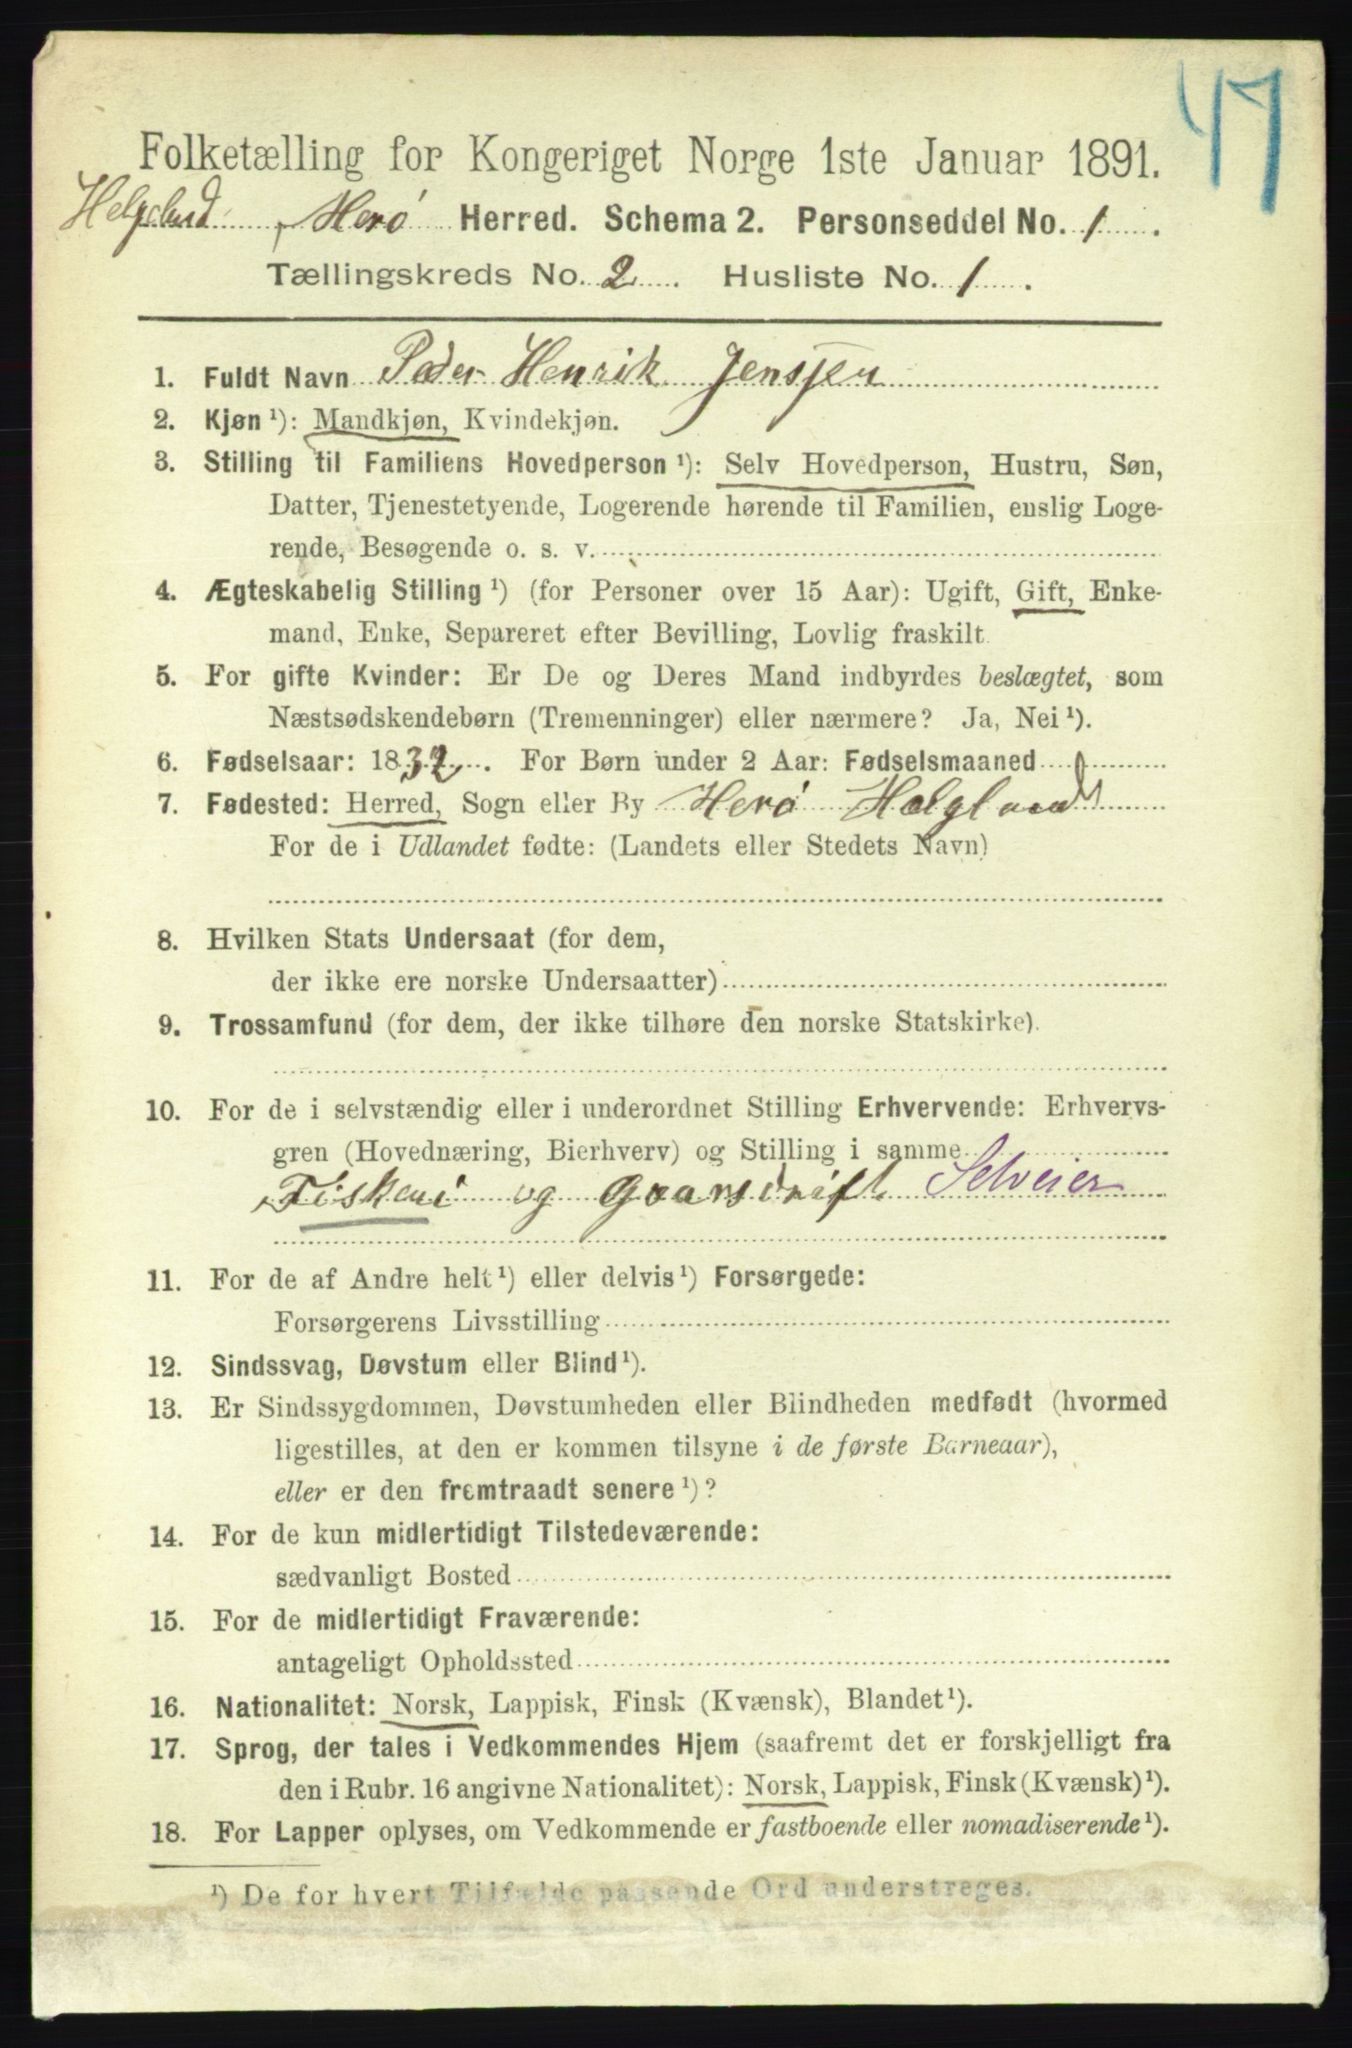 47
Folketælling for Kongeriget Norge 1ste Januar 1891.
Helgeland, Herø Herred. Schema 2. Personseddel No. 1.
Tællingskreds No. 2. Husliste No. 1.
1. Fuldt Navn Peder Henrik Jenssen
2. Kjøn ¹): Mandkjøn, Kvindekjøn.
3. Stilling til Familiens Hovedperson ¹): Selv Hovedperson, Hustru, Søn,
Datter, Tjenestetyende, Logerende hørende til Familien, enslig Loge-
rende, Besøgende o. s. v.
4. Ægteskabelig Stilling ¹) (for Personer over 15 Aar): Ugift, Gift, Enke-
mand, Enke, Separeret efter Bevilling, Lovlig fraskilt.
5. For gifte Kvinder: Er De og Deres Mand indbyrdes beslægtet, som
Næstsødskendebørn (Tremenninger) eller nærmere? Ja, Nei ¹).
6. Fødselsaar: 1832. For Børn under 2 Aar: Fødselsmaaned
7. Fødested: Herred, Sogn eller By Herø Helgland
For de i Udlandet fødte: (Landets eller Stedets Navn)
8. Hvilken Stats Undersaat (for dem,
der ikke ere norske Undersaatter)
9. Trossamfund (for dem, der ikke tilhøre den norske Statskirke).
10. For de i selvstændig eller i underordnet Stilling Erhvervende: Erhvervs-
gren (Hovednæring, Bierhverv) og Stilling i samme
Fiskeri og Gaarsdrift Selveier
11. For de af Andre helt ¹) eller delvis ¹) Forsørgede:
Forsørgerens Livsstilling
12. Sindssvag, Døvstum eller Blind ¹).
13. Er Sindssygdommen, Døvstumheden eller Blindheden medfødt (hvormed
ligestilles, at den er kommen tilsyne i de første Barneaar),
eller er den fremtraadt senere ¹)?
14. For de kun midlertidigt Tilstedeværende:
sædvanligt Bosted
15. For de midlertidigt Fraværende:
antageligt Opholdssted
16. Nationalitet: Norsk, Lappisk, Finsk (Kvænsk), Blandet ¹).
17. Sprog, der tales i Vedkommendes Hjem (saafremt det er forskjelligt fra
den i Rubr. 16 angivne Nationalitet): Norsk, Lappisk, Finsk (Kvænsk) ¹).
18. For Lapper oplyses, om Vedkommende er fastboende eller nomadiserende ¹).
¹) De for hvert Tilfælde passende Ord understreges.